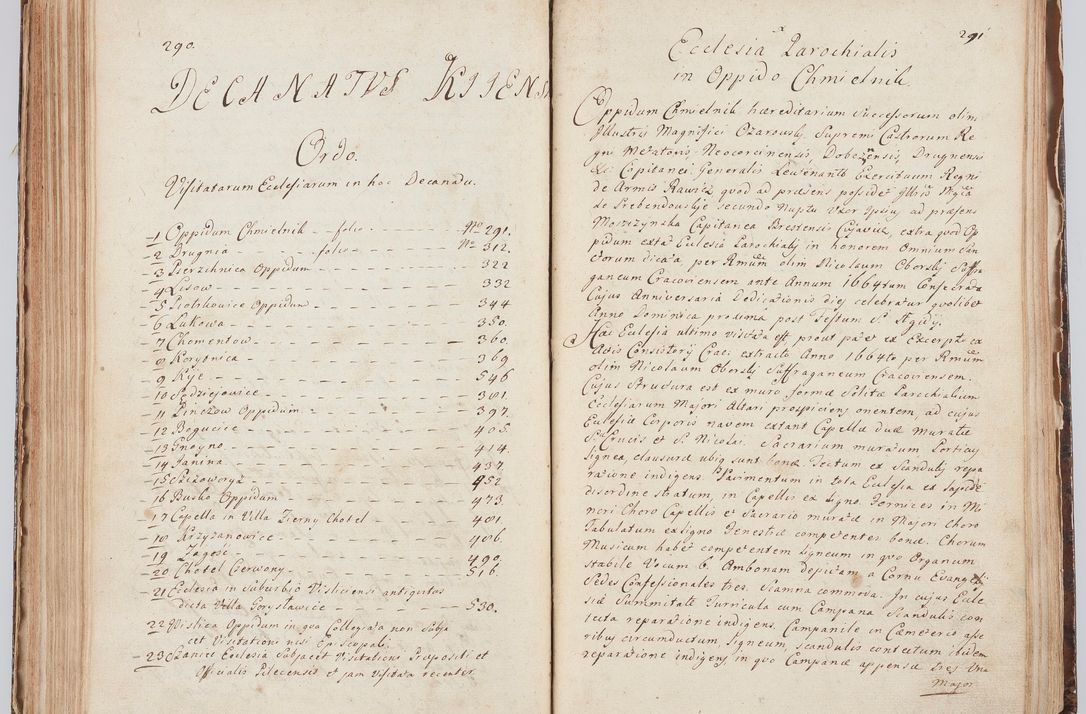 290.
DECANATVS KIIENS
Ordo.
Visitatarum Ecclesiarum in hoc Decanatu.
1 Oppidum Chmielnik - folio - No 291.
2 Drugnia - folio - No 312.
3 Pierzchnica Oppidum - 322
4 Lisow - 332
5 Piotrkowice Oppidum - 344
6 Łukowa - 350.
7 Chomentow - 360.
8 Korytnica - 369
9 Kije - 546
10 Sędziejowice - 381.
11 Pinczow Oppidum - 397.
12 Bogucice - 405.
13 Gnoyno - 414.
14 Janina - 437.
15 Szczaworyż - 452
16 Busko Oppidum - 473.
17 Capella in Villa Zierny Chotel - 481.
18 Krzyzanowice - 486.
19 Zagosc - 490.
20 Chotel Czerwony - 516.
21 Ecclesia in Suburbio Visliciensi antiquitus
dicta Villa Gorysławice - 530.
22 Wislica Oppidum in quo Collegiata non Subja
cet Visitationi nisi Episcopali.
23 Szaniec Ecclesia Subjacet Visitationi Præpositi et
Officialis Pilecensis et jam Visitata recenter.
291
Ecclesia Parochialis
in Oppido Chmielnik.
Oppidum Chmielnik hæreditarium Successorum olim
Illustris Magnifici Ożarowsky Supremi Castrorum Re
gni Metatoris, Neocorcinensis, Dobczensis, Drugnensi
Capitanei, Generalis Leutenanti Exercituum Regni
de Armis Rawicz quod ad præsens possidet
de Brebendowskie secundo Nuptu Uxor Ipsius ad præsens
Moszzynska Capitanea Brestensis Cujaviæ, extra quod Op
pidum extat Ecclesia Parochialis in honorem Omnium San
ctorum dicata per Rmum olim Nicolaum Oborsky Suffra
ganeum Cracoviensem ante Annum 1664tum Consecrata
Cujus Anniversaria Dedicationis dies celebratur quolibet
Anno Dominica proxima post Festum S. Ægidy.
Hæc Ecclesia ultimo visitata est prout patet ex Excerpto ex
Actis Consistory Crac: extracto Anno 1664to per Rmum
olim Nicolaum Oborsky Suffraganeum Cracoviensem.
Cujus Structura est ex muro formæ Solitæ Parochialium
Ecclesiarum Majori Altari prospiciens orientem, ad cujus
Ecclesiæ Corporis navem extant Capellæ duæ Muratæ
S. Crucis et S. Nicolai. Sacrarium muratum Porticus
lignea, clausuræ ubiq sunt bonæ. Tectum ex Scandulis repa
ratione indigens. Pavimentum in tota Ecclesia ex lapide
disordine stratum, in Capellis ex ligno. Fornices in Mi
nori Choro Capellis et Sacrario muratæ in Majori Choro
Tabulatum ex ligno Fenestræ competentes bonæ. Chorum
Musicum habet competentem ligneum in quo Organum
stabile Vocum 6. Ambonam depictam a Cornu Evangely
Sedes Confessionales tres. Scamna commoda. In cujus Eccle
siæ Summitate Turricula cum Campana Scandulis con
tecta reparatione indigens. Campanile in Cæmeterio asse
ribus circumductum ligneum, scandulis contectum itidem
reparatione indigens in quo Campanæ appensæ tres Una
Major